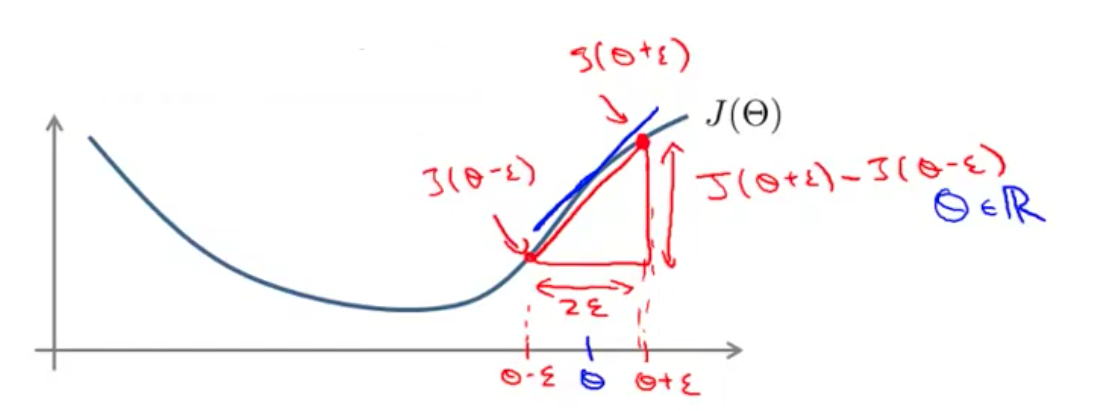 J(Θ+ε)
J(Θ)
J(Θ-ε)
J(Θ+ε)-J(Θ-ε)
Θ∈ℝ
2ε
Θ-ε Θ Θ+ε